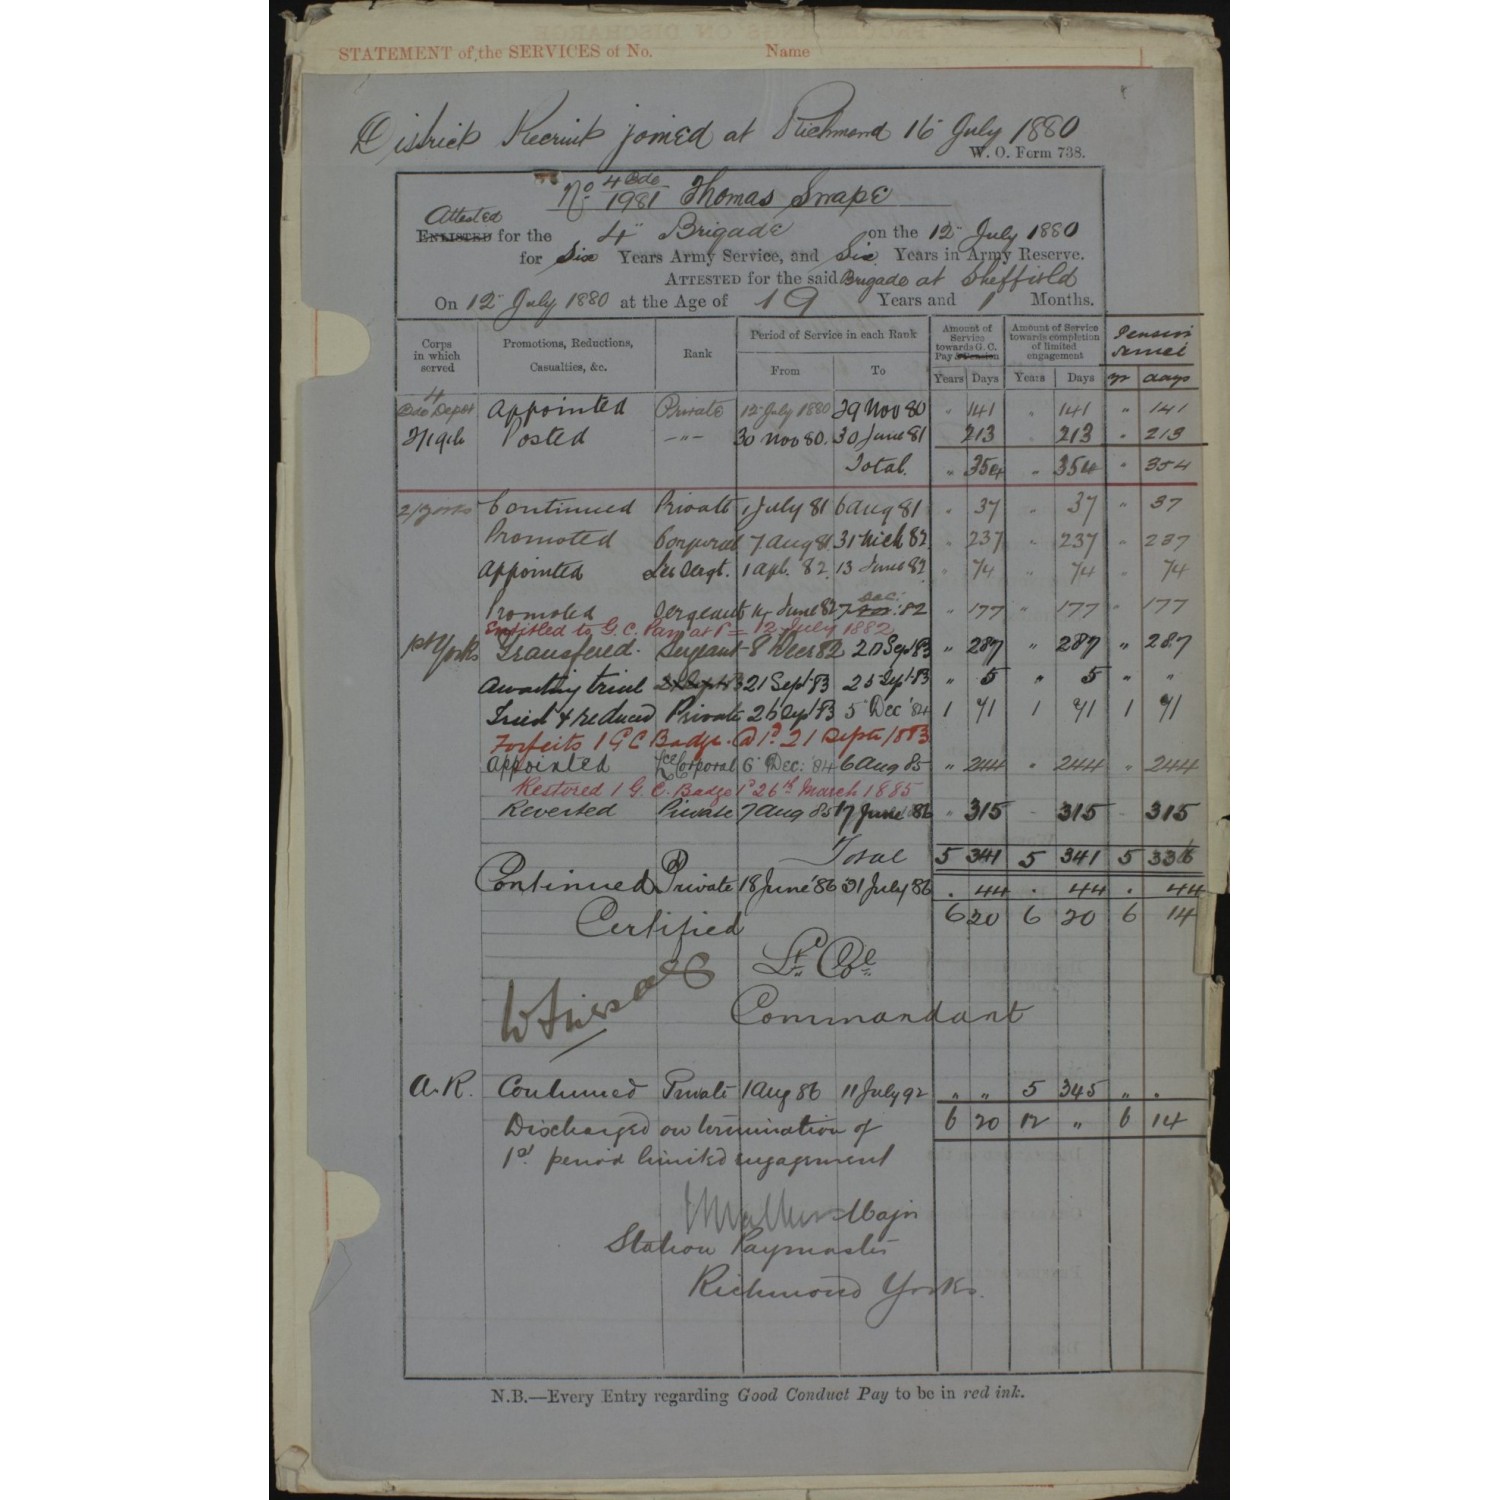 STATEMENT of the SERVICES of No. Name
District Recruit joined at Richmond 15 July 1880
W. O. Form 738.
No. 4 Bde / 1981 Thomas Snape
Attested
ENLISTED for the 4" Brigade on the 12" July 1880
for Six Years Army Service, and Six Years in Army Reserve.
ATTESTED for the said Brigade at Sheffield
On 12" July 1880 at the Age of 19 Years and 1 Months.
Corps in which served Promotions, Reductions, Casualties, &c. Rank Period of Service in each Rank From To Amount of Service towards G. C. Pay & Pension Years Days Amount of Service towards completion of limited engagement Years Days Pension yr days
4 Bde Depot Appointed Private 12 July 1880 29 Nov 80 " 141 " 141 " 141
2/19th Posted -"- 30 Nov 80. 30 June 81 213 " 213 " 213
Total. " 354 " 354 " 354
2/Yorks Continued Private 1 July 81 6 Aug 81 " 37 " 37 " 37
Promoted Corporal 7 Aug 81 31 Mch 82 " 237 " 237 " 237
Appointed Sergt. 1 Apl. 82 13 June 82 " 74 " 74 " 74
Promoted Sergeant 14 June 82 7 Dec: 82 " 177 " 177 " 177
Entitled to G. C. Pay at 1d 12 July 1882
1st Yorks Transfered. Sergeant 8 Decr 82 20 Sept 83 " 287 " 287 " 287
Awaiting trial 21 Sept 83 25 Sept 83 " 5 " 5 " "
Tried & reduced Private 26 Sept 83 5 Dec '84 1 71 1 71 1 71
Forfeits 1 G C Badge @ 1d. 21 Septr 1883
Appointed Lce Corporal 6 Dec: '84 6 Aug 85 " 244 " 244 " 244
Restored 1 G. C. Badge 1d 26th March 1885
Reverted Private 7 Aug 85 17 June 86 " 315 " 315 " 315
Total 5 341 5 341 5 336
Continued Private 18 June '86 31 July 86 . 44 . 44 . 44
Certified 6 20 6 20 6 14
Lt Col
Commandant
A.R. Continued Private 1 Aug 86 11 July 92 " " 5 345 " "
Discharged on termination of 6 20 12 " 6 14
1st. period limited engagement
Major
Station Paymaster
Richmond Yorks.
N.B.—Every Entry regarding Good Conduct Pay to be in red ink.